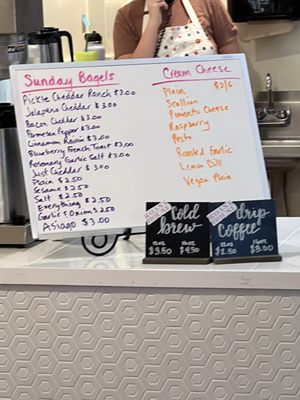 Sunday Bagels
Pickle Cheddar $3.00
Jalapeño Cheddar $3.00
Bacon Cheddar $3.00
Parmesan Pepper $3.00
Cinnamon Raisin $3.00
Blueberry French Toast $3.00
Rosemary Garlic Salt $3.00
Just Cheddar $3.00
Plain $2.50
Sesame $2.50
Salt $2.50
Everything $2.50
Garlic & Onion $2.50
Asiago $3.00
Cream Cheese
Plain $2/6
Scallion
Pimento Cheese
Raspberry
Pesto
Roasted Garlic
Lemon Dill
Vegan Plain
Cold
brew
$3.50 $4.50
drip
Coffee
$2.50 $3.00